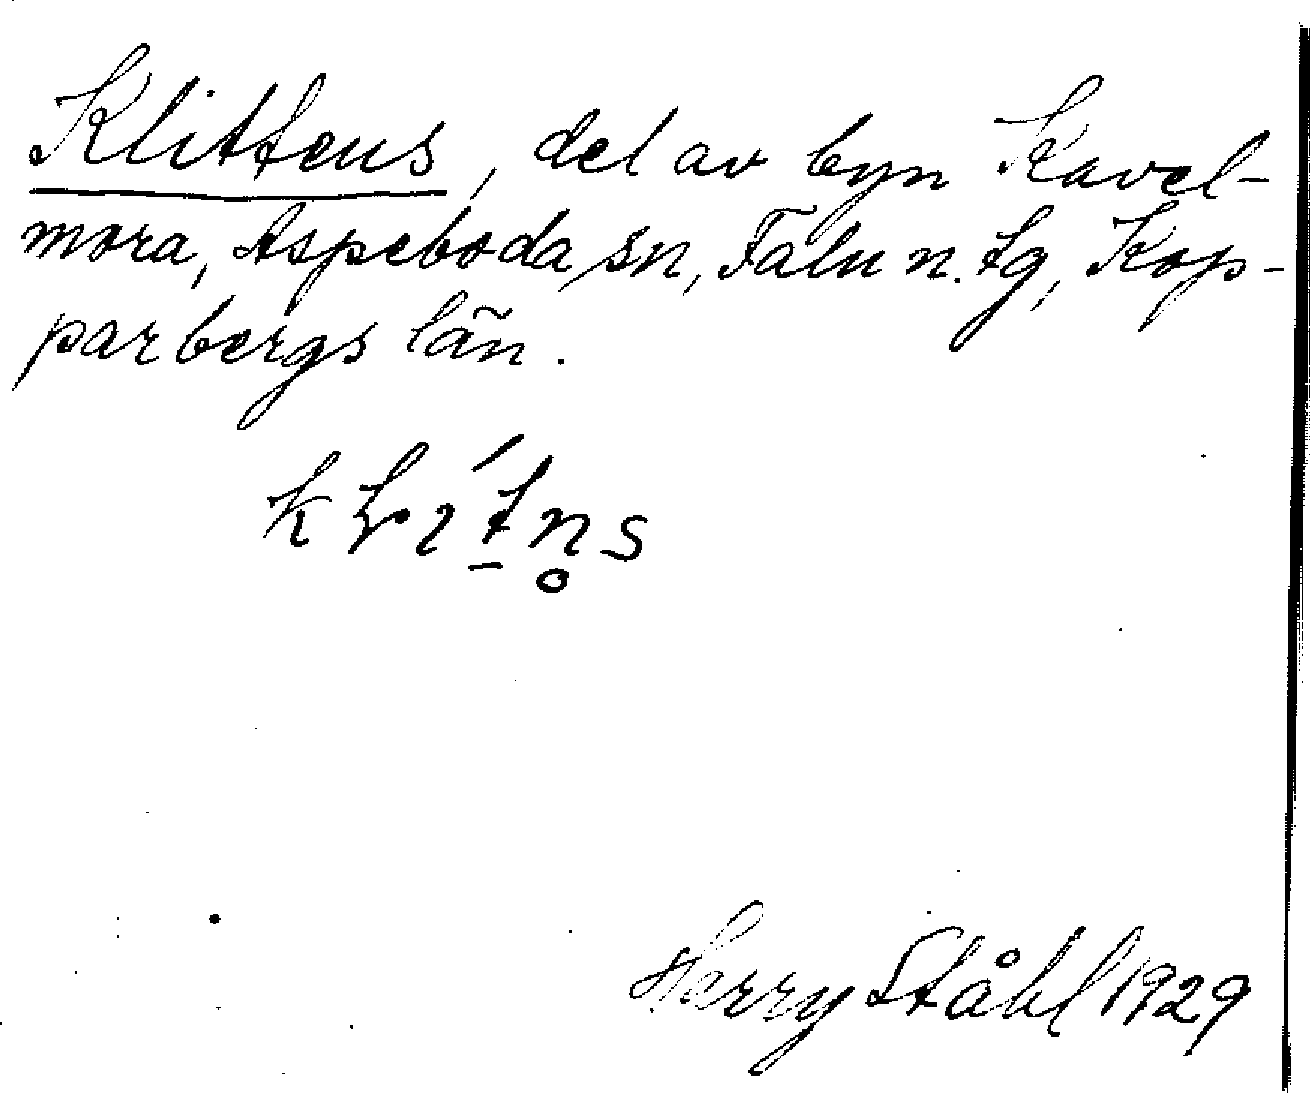 Klittens, del av byn Kavel-
mora, Aspeboda sn, Falu n. tg, Kop-
parbergs län.
Harry Ståhl 1929